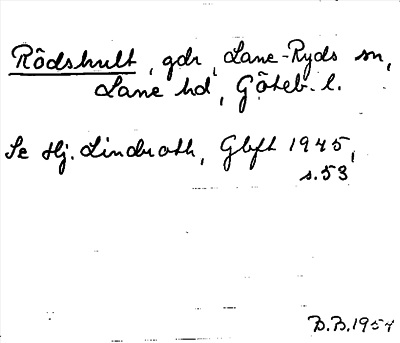 Rödshult, gdr, Lane-Ryds sn,
Lane hd, Göteb. l.
Se Hj. Lindroth, Gbft 1945,
s. 53
B.B. 1957